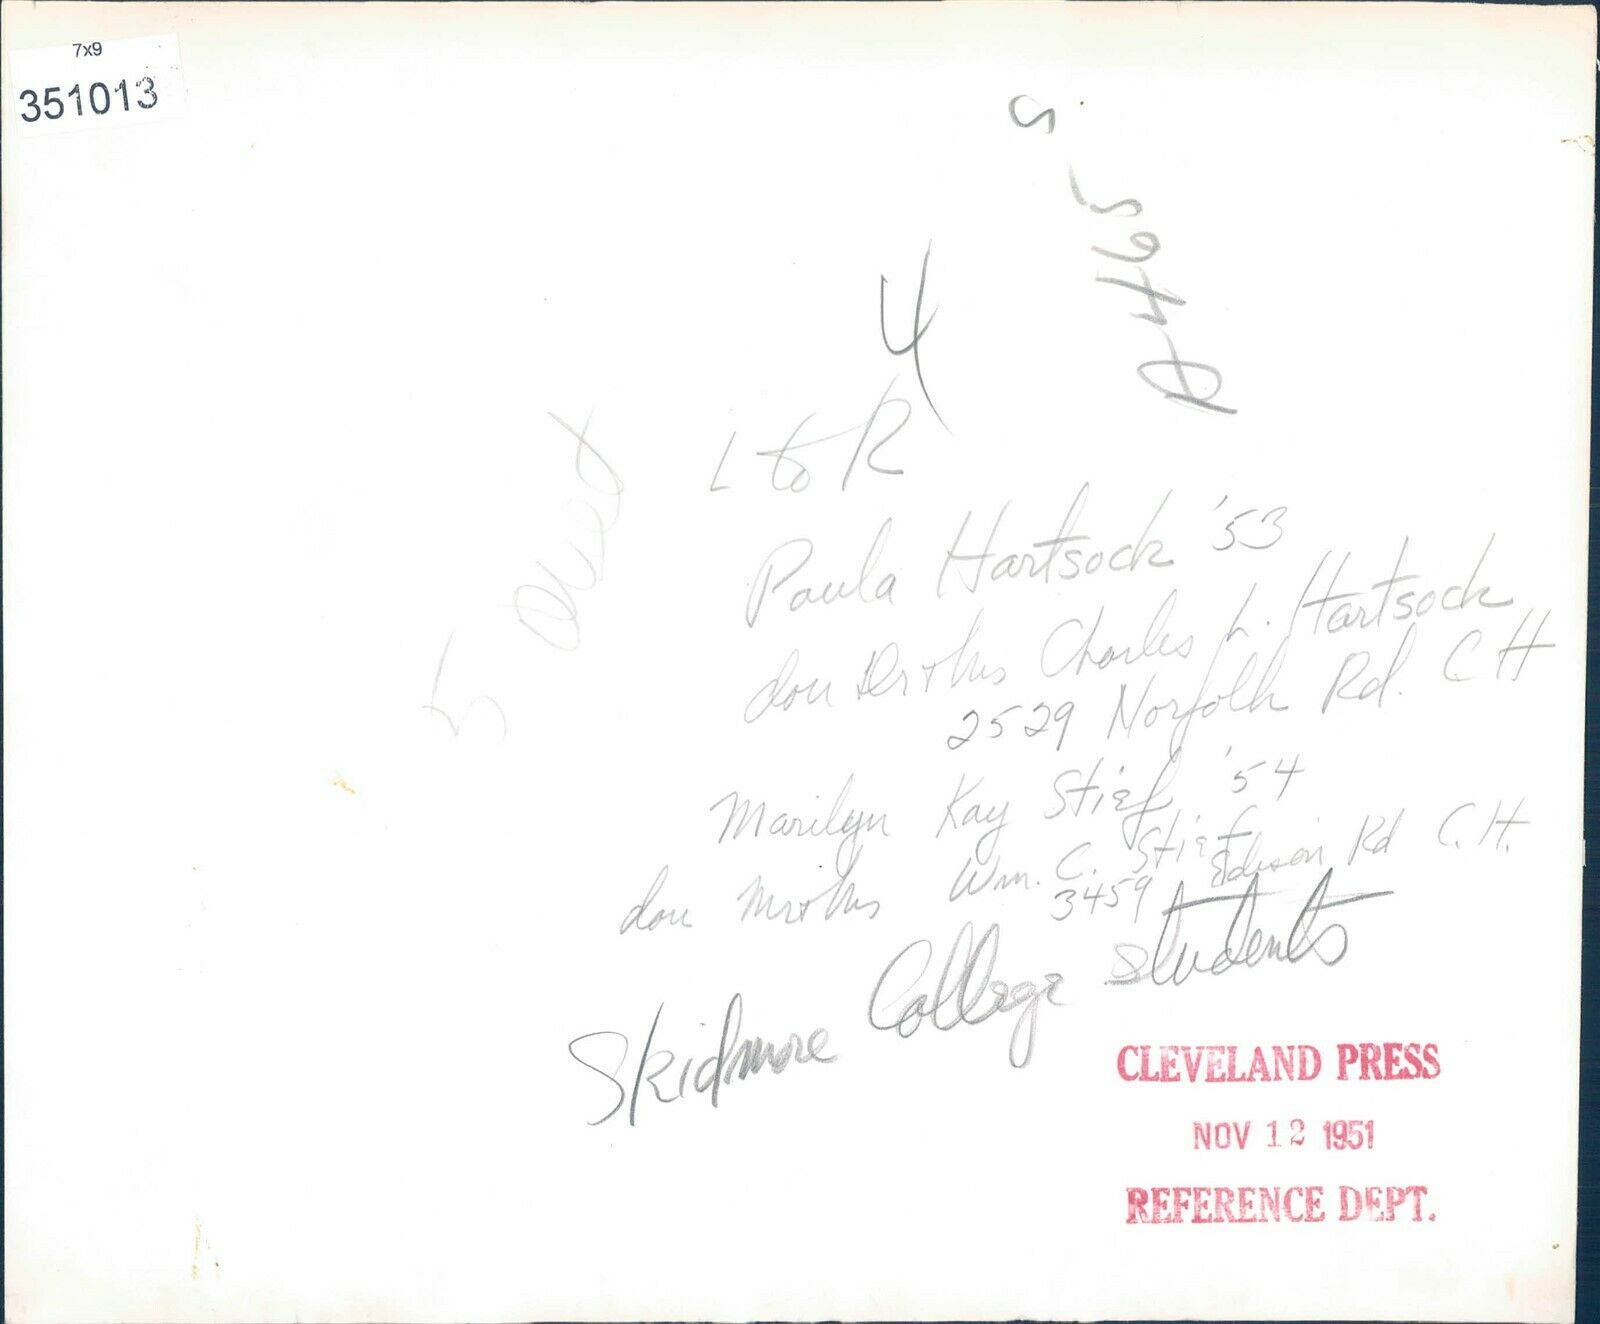 7x9
351013
4
L to R
Paula Hartsock '53
dau Dr + Mrs Charles L. Hartsock
2529 Norfolk Rd. C H
Marilyn Kay Stief '54
dau Mr + Mrs Wm. C. Stief
3459 Edison Rd C. H.
Skidmore College Students
CLEVELAND PRESS
NOV 12 1951
REFERENCE DEPT.